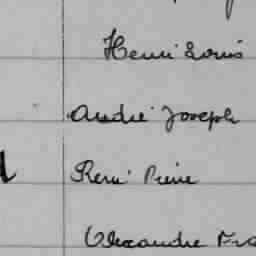 Henri Louis
André Joseph
René Pierre
Alexandre